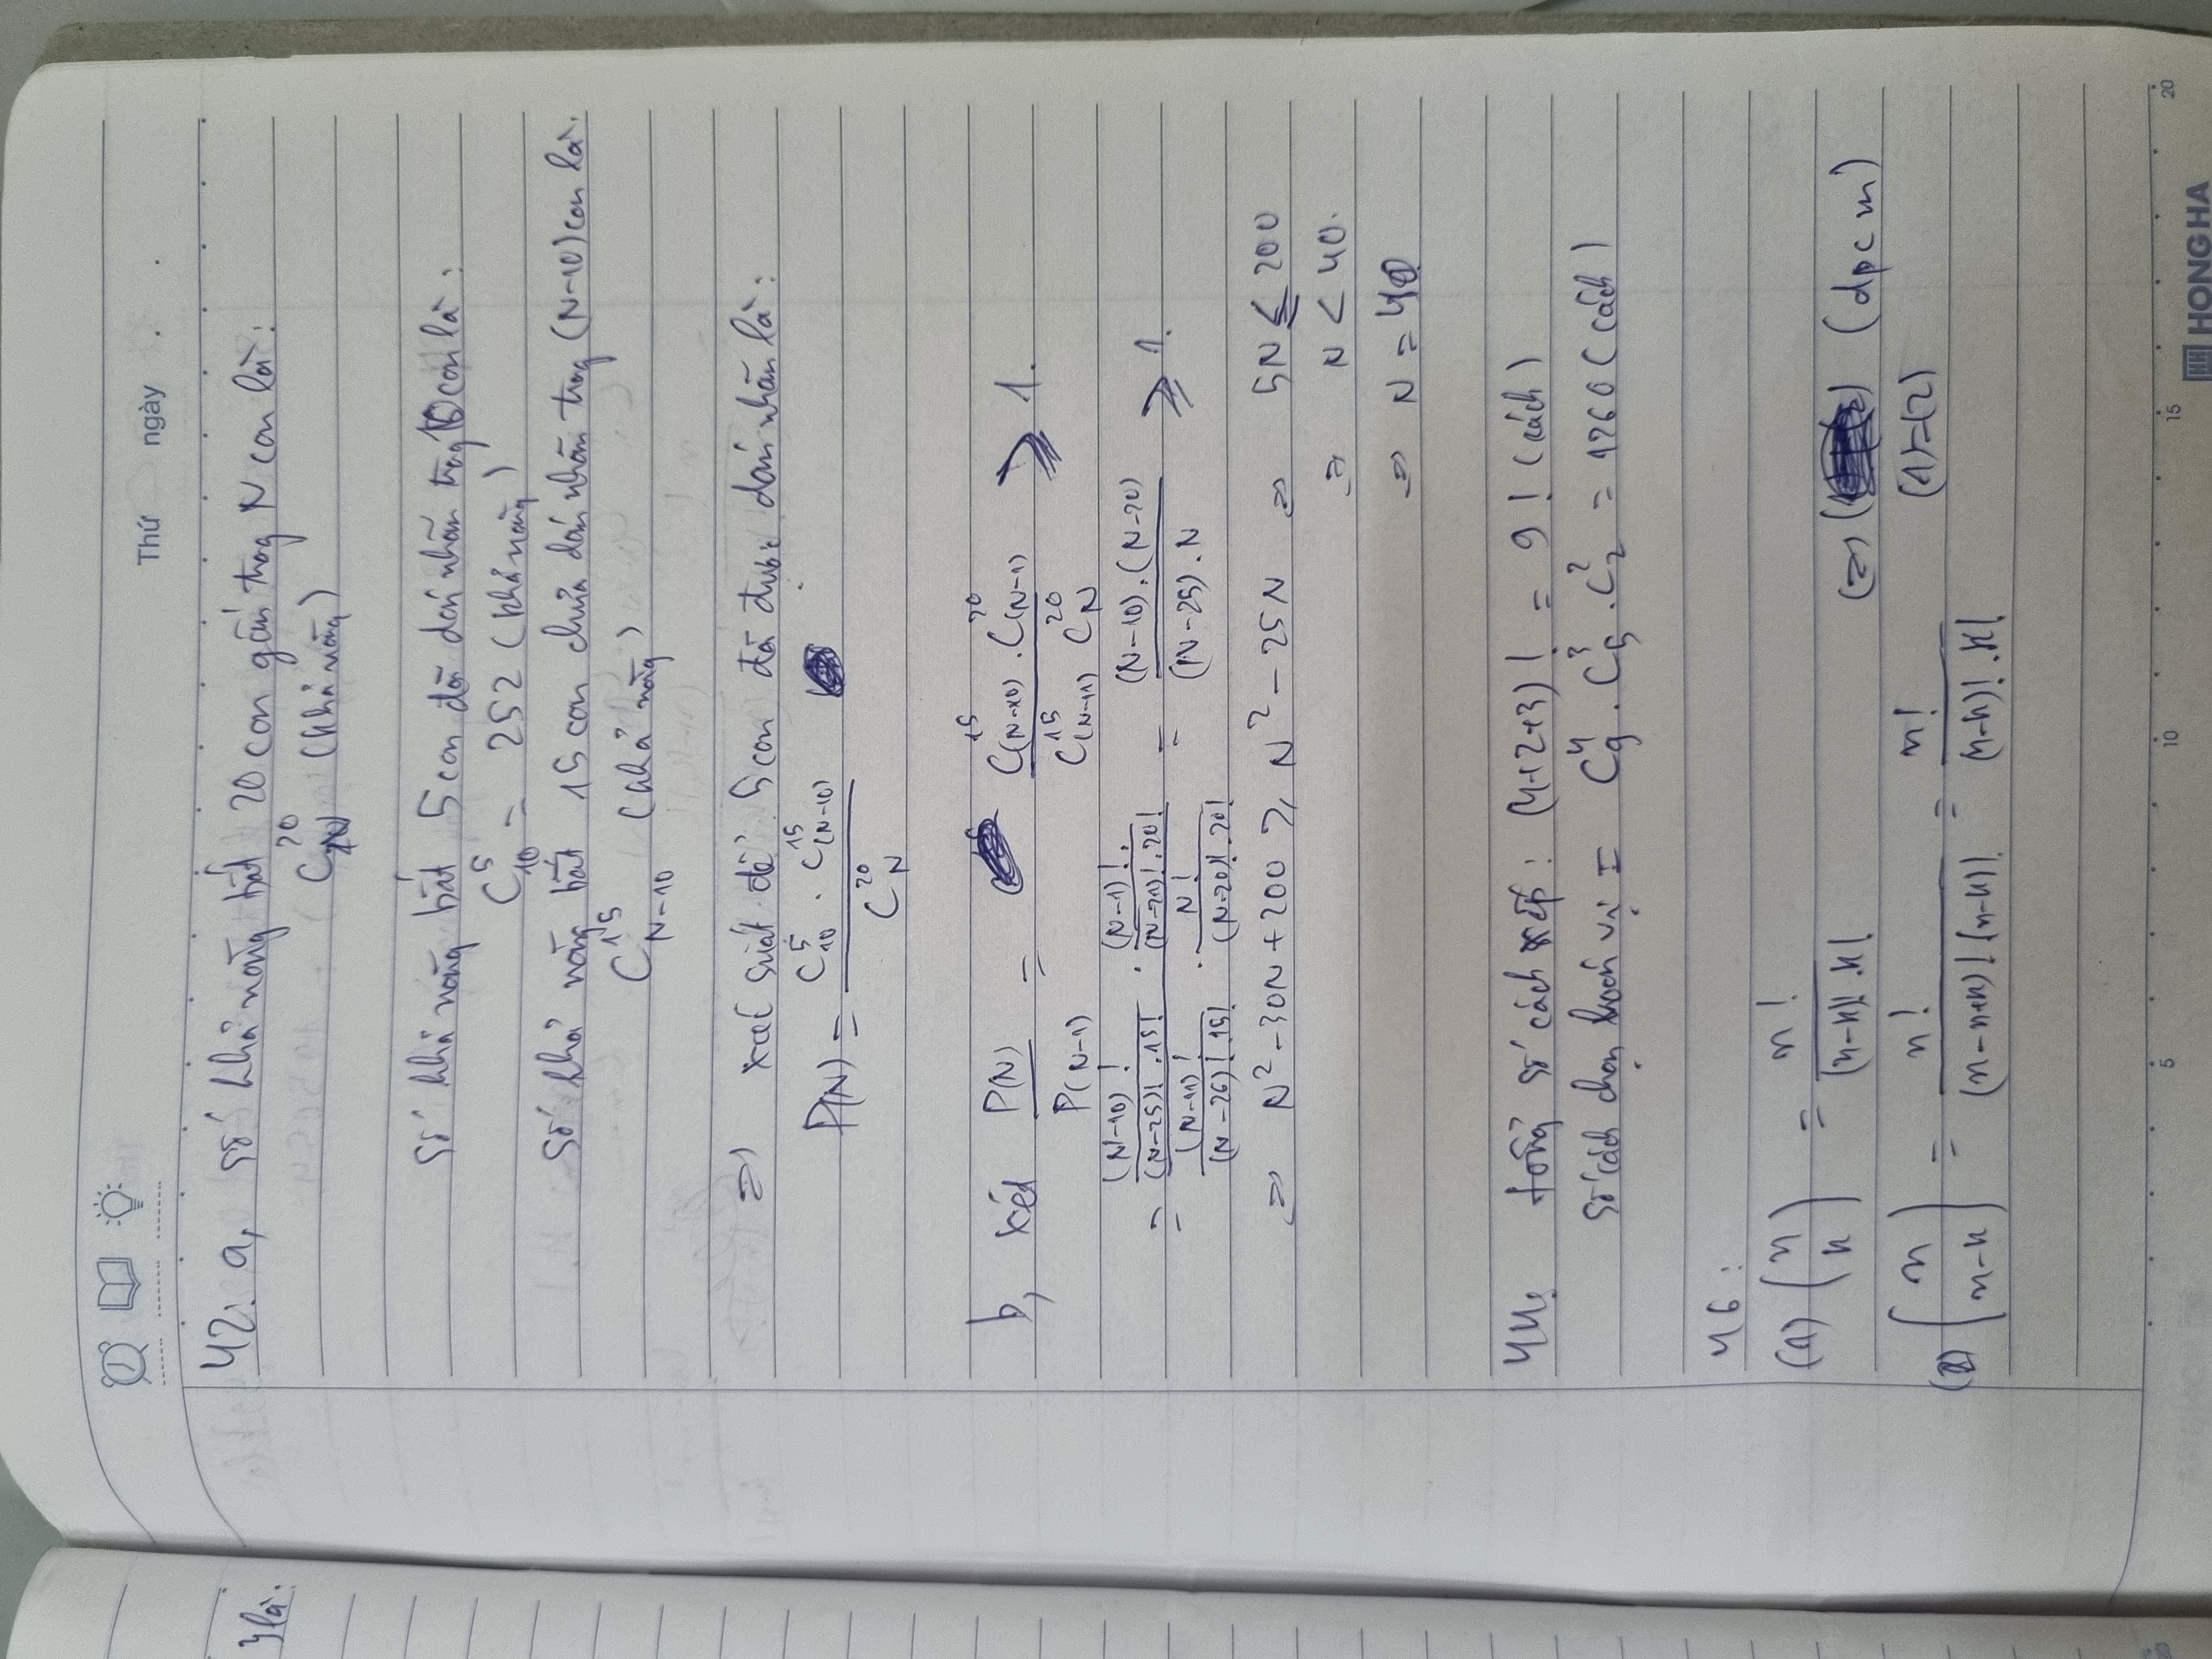 Thứ ngày . .
4 là:
42: a, số khả năng bắt 20 con gấu trog N con là:
C_N^20 (khả năng)
số khả năng bắt 5 con đã dán nhãn trog 10 con là:
C_10^5 = 252 (khả năng)
số khả năng bắt 15 con chưa dán nhãn trog (N-10) con là:
C_{N-10}^15 (khả năng)
=> xác suất để 5 con đã được dán nhãn là:
P(N) = (C_10^5 . C_(N-10)^15) / C_N^20
b, xét P(N) / P(N-1) = (C_(N-10)^15 . C_(N-1)^20) / (C_(N-11)^15 C_N^20) ⩾ 1.
= ((N-10)! / ((N-25)! .15!) . (N-1)!. / ((N-21)! .20!)) / ((N-11)! / ((N-26)! .15!) . N! / ((N-20)! .20!)) = ((N-10).(N-20)) / ((N-25).N) ⩾ 1.
=> N² - 30N + 200 ⩾ N² - 25N => 5N ⩽ 200
=> N < 40.
=> N = 40
44: tổng số cách xếp: (4+2+3)! = 9! (cách)
số cách chọn hoán vị = C_9^4 . C_5^3 . C_2^2 = 1260 (cách)
46:
(1) (n k) = n! / ((n-k)! .k!)
=> (đpcm)
(2) (n n-k) = n! / ((n-n+k)! (n-k)!) = n! / ((n-k)! .k!) (1)=(2)
5 10 15 20
HH HONG HA